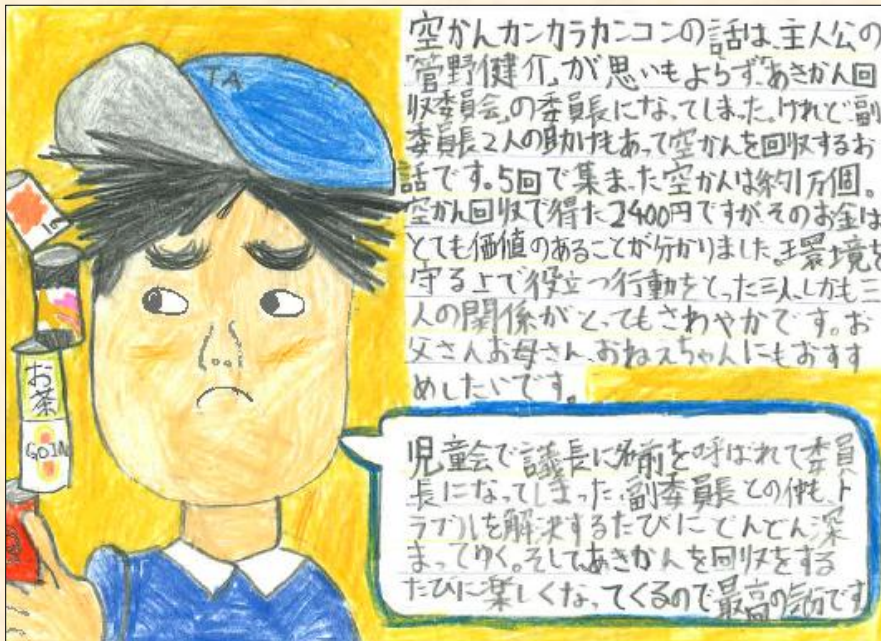 TA
空かんカンカラカンコンの話は、主人公の
「菅野健介」が思いもよらず「あきかん回
収委員会」の委員長になってしまった。けれど副
委員長2人の助けもあって空かんを回収するお
話です。5回で集まった空かんは約1万個。
空かん回収で得た2400円ですがそのお金は
とても価値のあることが分かりました。環境を
守る上で役立つ行動をとった三人、しかも三
人の関係がとってもさわやかです。お
父さんお母さん、おねえちゃんにもおすす
めしたいです。
お茶
GOIN
児童会で議長に名前を呼ばれて委員
長になってしまった。副委員長との仲も、ト
ラブルを解決するたびにどんどん深
まってゆく。そしてあきかんを回収をする
たびに楽しくなってくるので最高の気分です